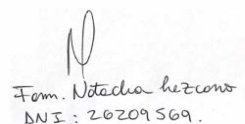 Farm. Natacha Lezcano
DNI: 26209569.